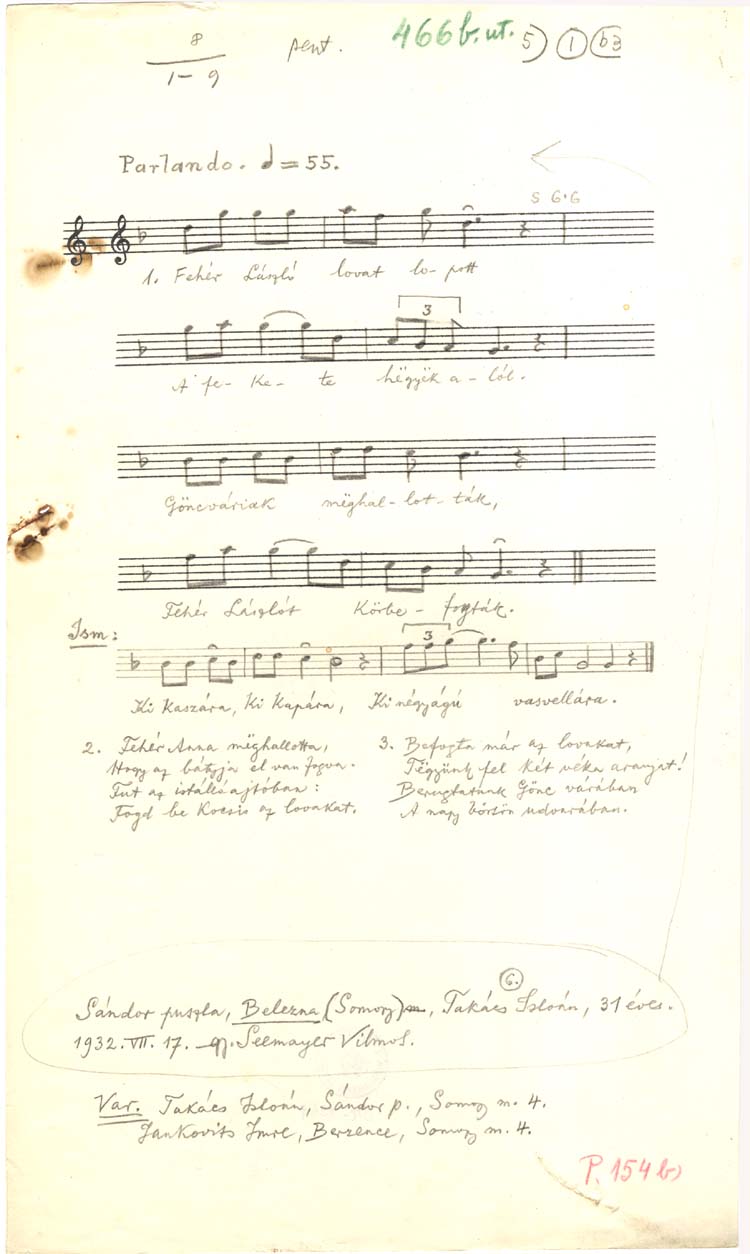 8
1–9
pent.
466 b. ut.
5) 1 b3
Parlando. ♩ = 55.
S 6·6
1. Fehér László lovat lo- pott
3
A fe- ke- te hëgyëk a- lól.
Göncváriak mëghal- lot- ták,
Fehér Lászlót körbe- fogták.
Ism:
3
Ki kaszára, ki kapára, Ki négyágú vasvellára.
2. Fehér Anna mëghallotta,
Hogy az bátyja el van fogva.
Fut az istálló ajtóban:
Fogd be kocsis az lovakat.
3. Befogta már az lovakat,
Tëgyünk fel két véka aranyat!
Berugtatunk Gönc várában
A nagy börtön udvarában.
6.
Sándor puszta, Belezna (Somogy) m, Takács István, 31 éves.
1932. VII. 17. gy. Seemayer Vilmos.
Var. Takács István, Sándor p., Somogy m. 4.
Jankovits Imre, Berzence, Somogy m. 4.
P. 154 b)